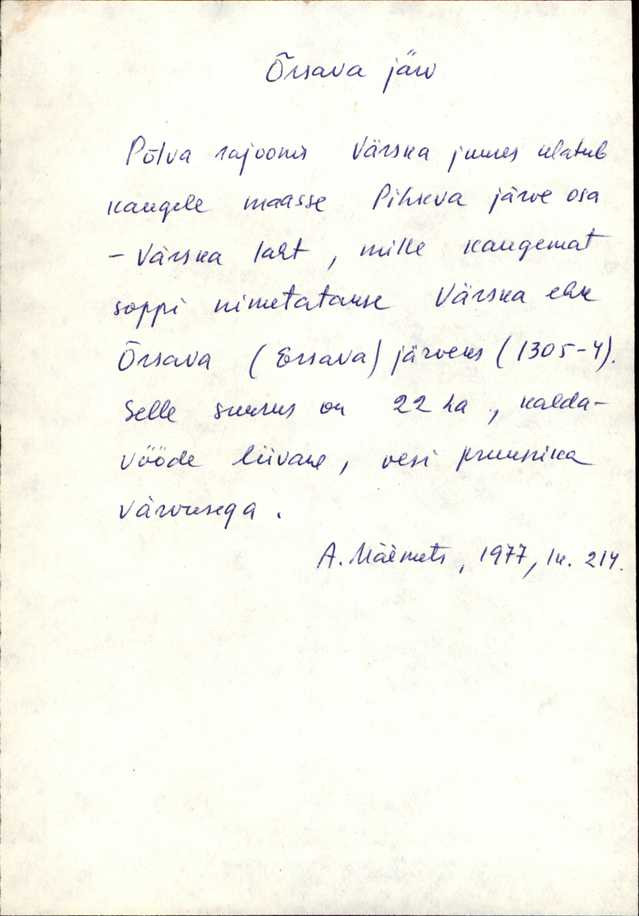 Õrsava järv
Põlva rajoonis Värska juures ulatub
kaugele maasse Pihkva järve osa
- Värska laht, mille kaugemat
soppi nimetatakse Värska ehk
Õrsava (Ersava) järveks (1305-4).
Selle suurus on 22 ha, kalda-
vööde liivane, vesi pruunika
värvusega.
A. Mäemets, 1977, lk. 214.